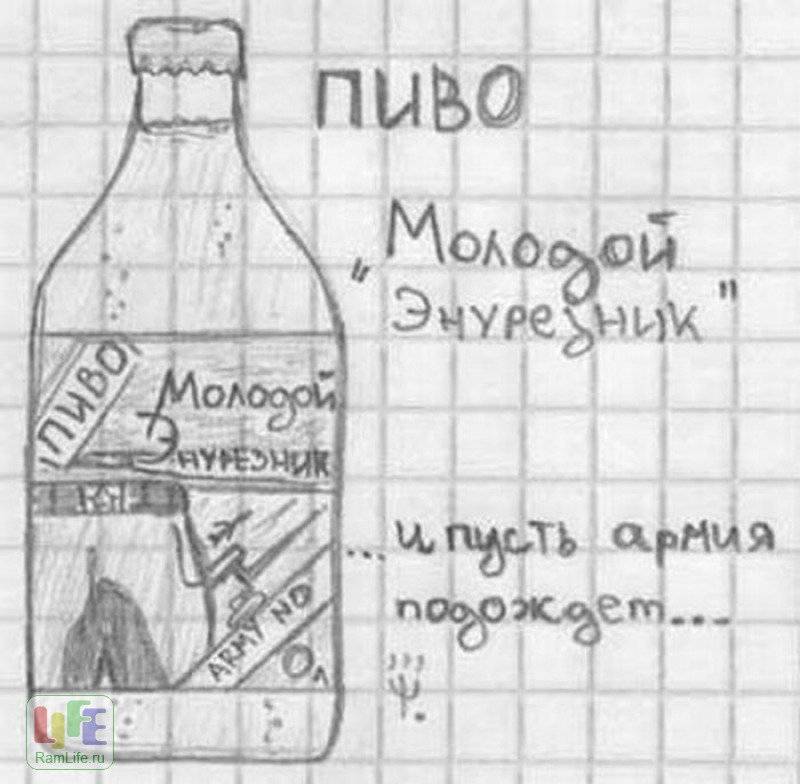 ПИВО
"Молодой
Энурезник"
ПИВО
Молодой
Энурезник
ARMY NO
...и пусть армия
подождет...
LIFE
RamLife.ru